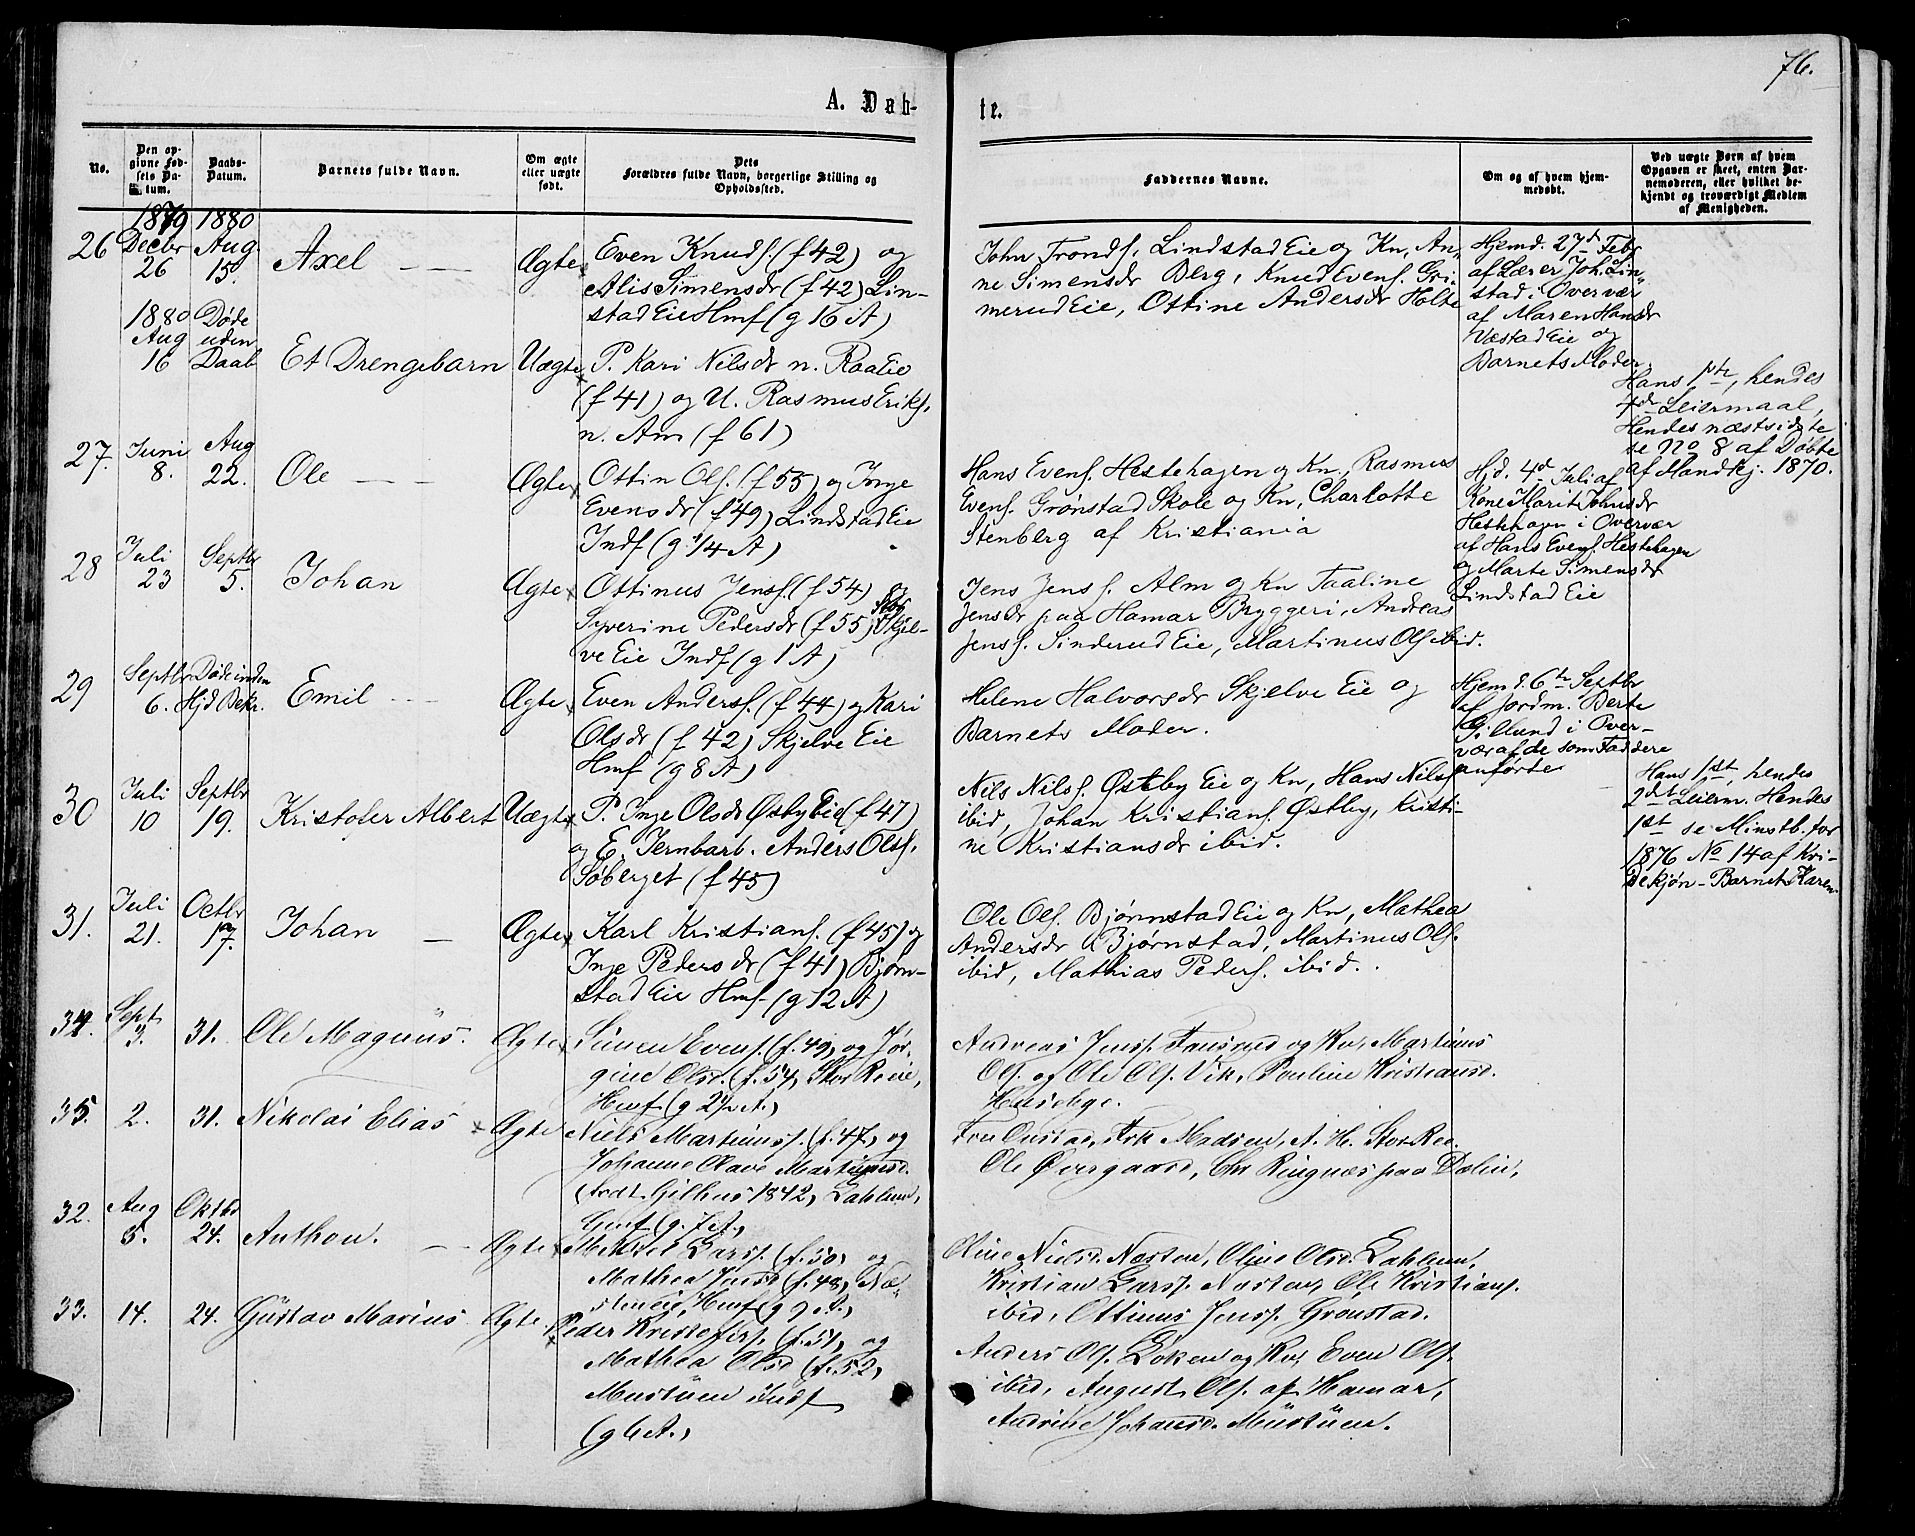 76.
A. Døb-
te.
No.
Den op-
givne Fød-
sels Da-
tum.
Daabs-
Datum.
Barnets fulde Navn.
Om ægte
eller uægte
født.
Dets
Forældres fulde Navn, borgerlige Stilling og
Opholdssted.
Faddernes Navne.
Om og af hvem hjem-
medøbt.
Ved uægte Børn af hvem
Opgaven er skeet, enten Bar-
nemoderen, eller hvilket be-
kjendt og troværdigt Medlem
af Menigheden.
1879 1880
26 Decbr 26 Aug. 15. Axel Ægte
Even Knuds. (f 42) og
Alis Simensdr (f 42) Lin-
stad Eie Hmf (g 16 A)
John Tronds. Lindstad Eie og Kn, An-
ne Simensdr Berg, Knud Evens. Gri-
merud Eie, Ottine Andersdr Holte
Hjemd. 27d Febr
af Lærer Joh. Lin-
stad i Overvær
af Maren Hansdr
Væstad Eie og
Barnets Moder
1880 Aug 16 Døde uden Daab Et Drengebarn Uægte
P. Kari Nilsdr n. Raaeie
(f 41) og U. Rasmus Eriks.
n. Am (f 61)
Hans 1ste, hendes
4de Leiermaal,
Hendes næstsidste
se No 8 af Døbte
af Mandkj. 1870.
27. Juni 8. Aug 22. Ole Ægte
Ottin Ols. (f 55) og Inge
Evensdr (f 49) Lindstad Eie
Indf (g 1/4 A)
Hans Evens. Hestehagen og Kn, Rasmus
Evens. Grønstad Skole og Kn, Charlotte
Stenberg af Kristiania
Hjd. 4d Juli af
Kone Marit Johnsdr
Hestehagen i Overvær
af Hans Evens. Hestehagen
og Marte Simensdr
Lindstad Eie
28 Juli 23 Septbr 5. Johan Ægte
Ottinus Jens. (f 54) og
Syverine Pedersdr (f 55) Stor Skjel-
ve Eie Indf (g 1 A)
Jens Jens. Alm og Kn Taaline
Jensdr paa Hamar Bryggeri, Andreas
Jens. Sinderud Eie, Martinus Ols ibid.
29 Septbr 6. Døde inden Hjd Bekr. Emil Ægte
Even Anders. (f 44) og Kari
Olsdr (f 42) Skjelve Eie
Hmf (g 8 A)
Helene Halvorsdr Skjelve Eie og
Barnets Moder.
Hjemd. 6te Septbr
af Jordm. Berte
Gillund i Over-
vær af de som Faddere
anførte
30 Juli 10 Septbr 19. Kristofer Albert Uægte
P. Inge Olsdr Østby Eie (f 47)
og E. Jernbarb. Anders Ols.
Søberget (f 45)
Nils Nils. Østby Eie og Kn, Hans Nils.
ibid, Johan Kristians. Østby, Kristi-
ne Kristiansdr ibid.
Hans 1ste, hendes
2det Leierm. Hendes
1st se Minstb. for
1876 No 14 af Kvi-
dekjøn - Barnet Karen
31. Juli 21. Octbr 17. Johan Ægte
Karl Kristians. (f 45) og
Inge Pedersdr (f 41) Bjørn-
stad Eie Hmf (g 12 A)
Ole Ols. Bjørnstad Eie og Kn, Mathea
Andersdr Bjørnstad, Martinus Ols.
ibid, Mathias Peders. ibid.
34. Sept. 3. 31. Ole Magnus. Ægte
Simen Evens. (f. 49) og Jør-
gine Olsd. (f. 54) Stor Reeie,
Hmf (g 2½ A.)
Andreas Jens. og Kn, Martinus
Ols. og Ole Ols. Vik, Pauline Kristiansd.
Husebye.
35. 2. 31. Nikolai Elias Ægte
Niels Martins. (f. 47) og
Johanne Olave Martinusd.
1842, Dahlum,
Gmf (g. 7 A.)
Fru Onstad, Frk Madsen, A. H. Stor Ree.
Ole Øvergaard, Chr Ringnes paa Dælin,
32. Aug 5. Oktbr 24. Anthon. Ægte
Mikkel Lars. (f. 50) og
Mathea Jensd (f. 48) Næ-
steneie, Hmf (g 9 A.)
Oline Nielsd. Næsten, Oline Olsd. Dahlum,
Kristian Lars. Næsten, Ole Kristians.
ibid, Ottinus Jens. Grønstad.
33. 14. 24. Gustav Marius Ægte.
Peder Kristofers. (f. 51) og
Mathea Olsd (f. 52)
Mustuen Indf
(g 6 A.)
Anders Ols. Løken og Kn, Even Ols.
ibid, August Ols. af Hamar,
Andrine Johansd. Mustuen.